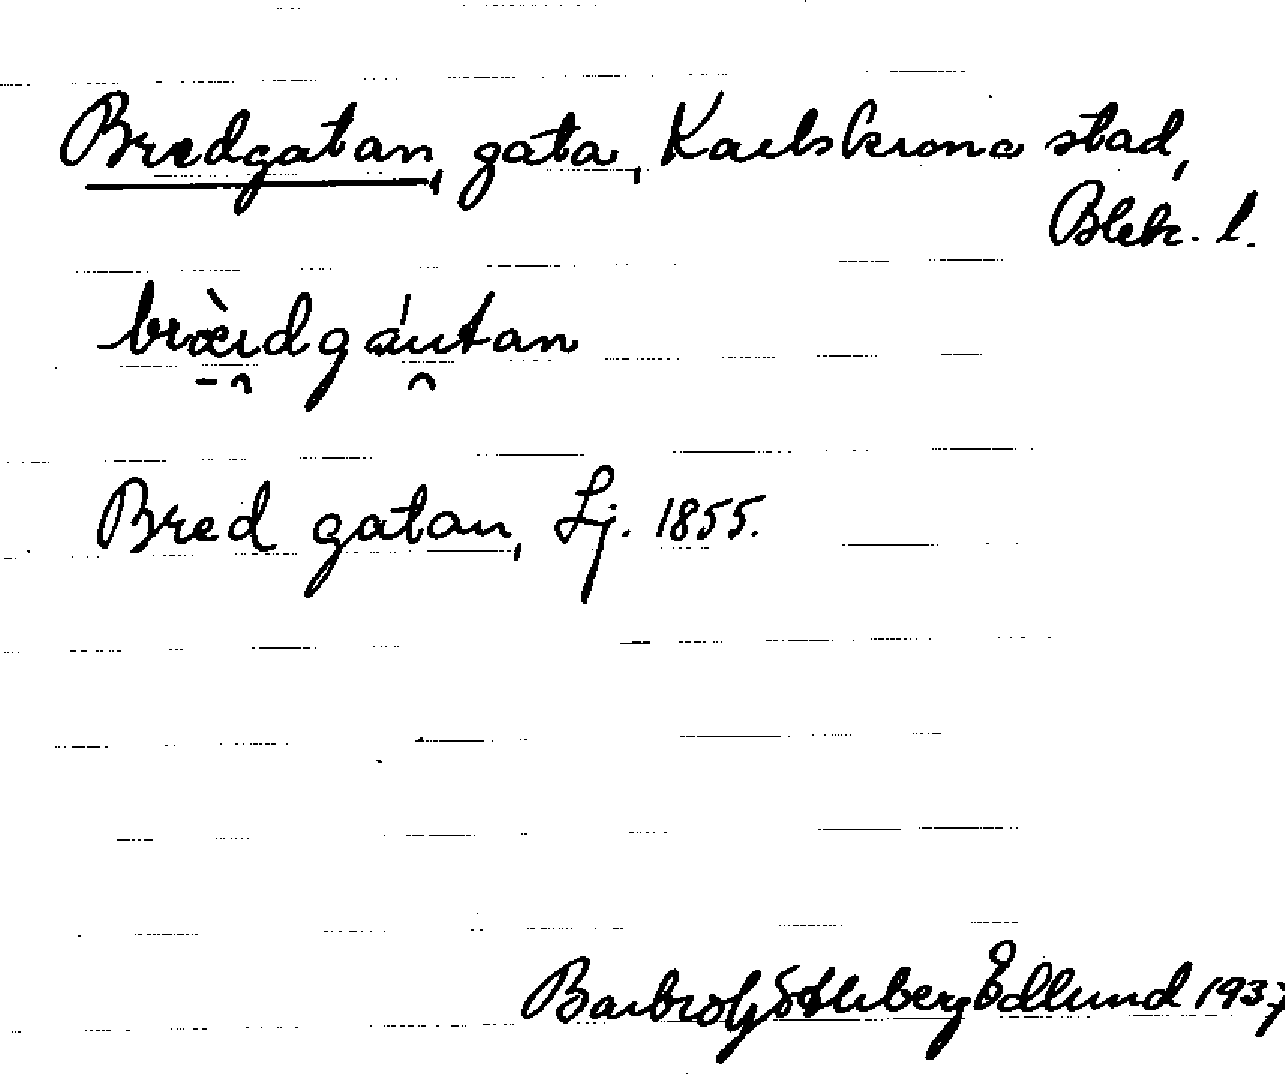 Bredgatan, gata, Karlskrona stad,
Blek. l.
bræ̀i̯dgáu̯tan
Bred gatan, Lj. 1855.
Barbro Götleberg Edlund 1937